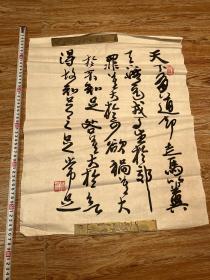 天下有道却走馬以糞
天下无道戎馬生於郊
罪莫大於可欲禍莫大
於不知足咎莫大於欲
得故知足之足常足